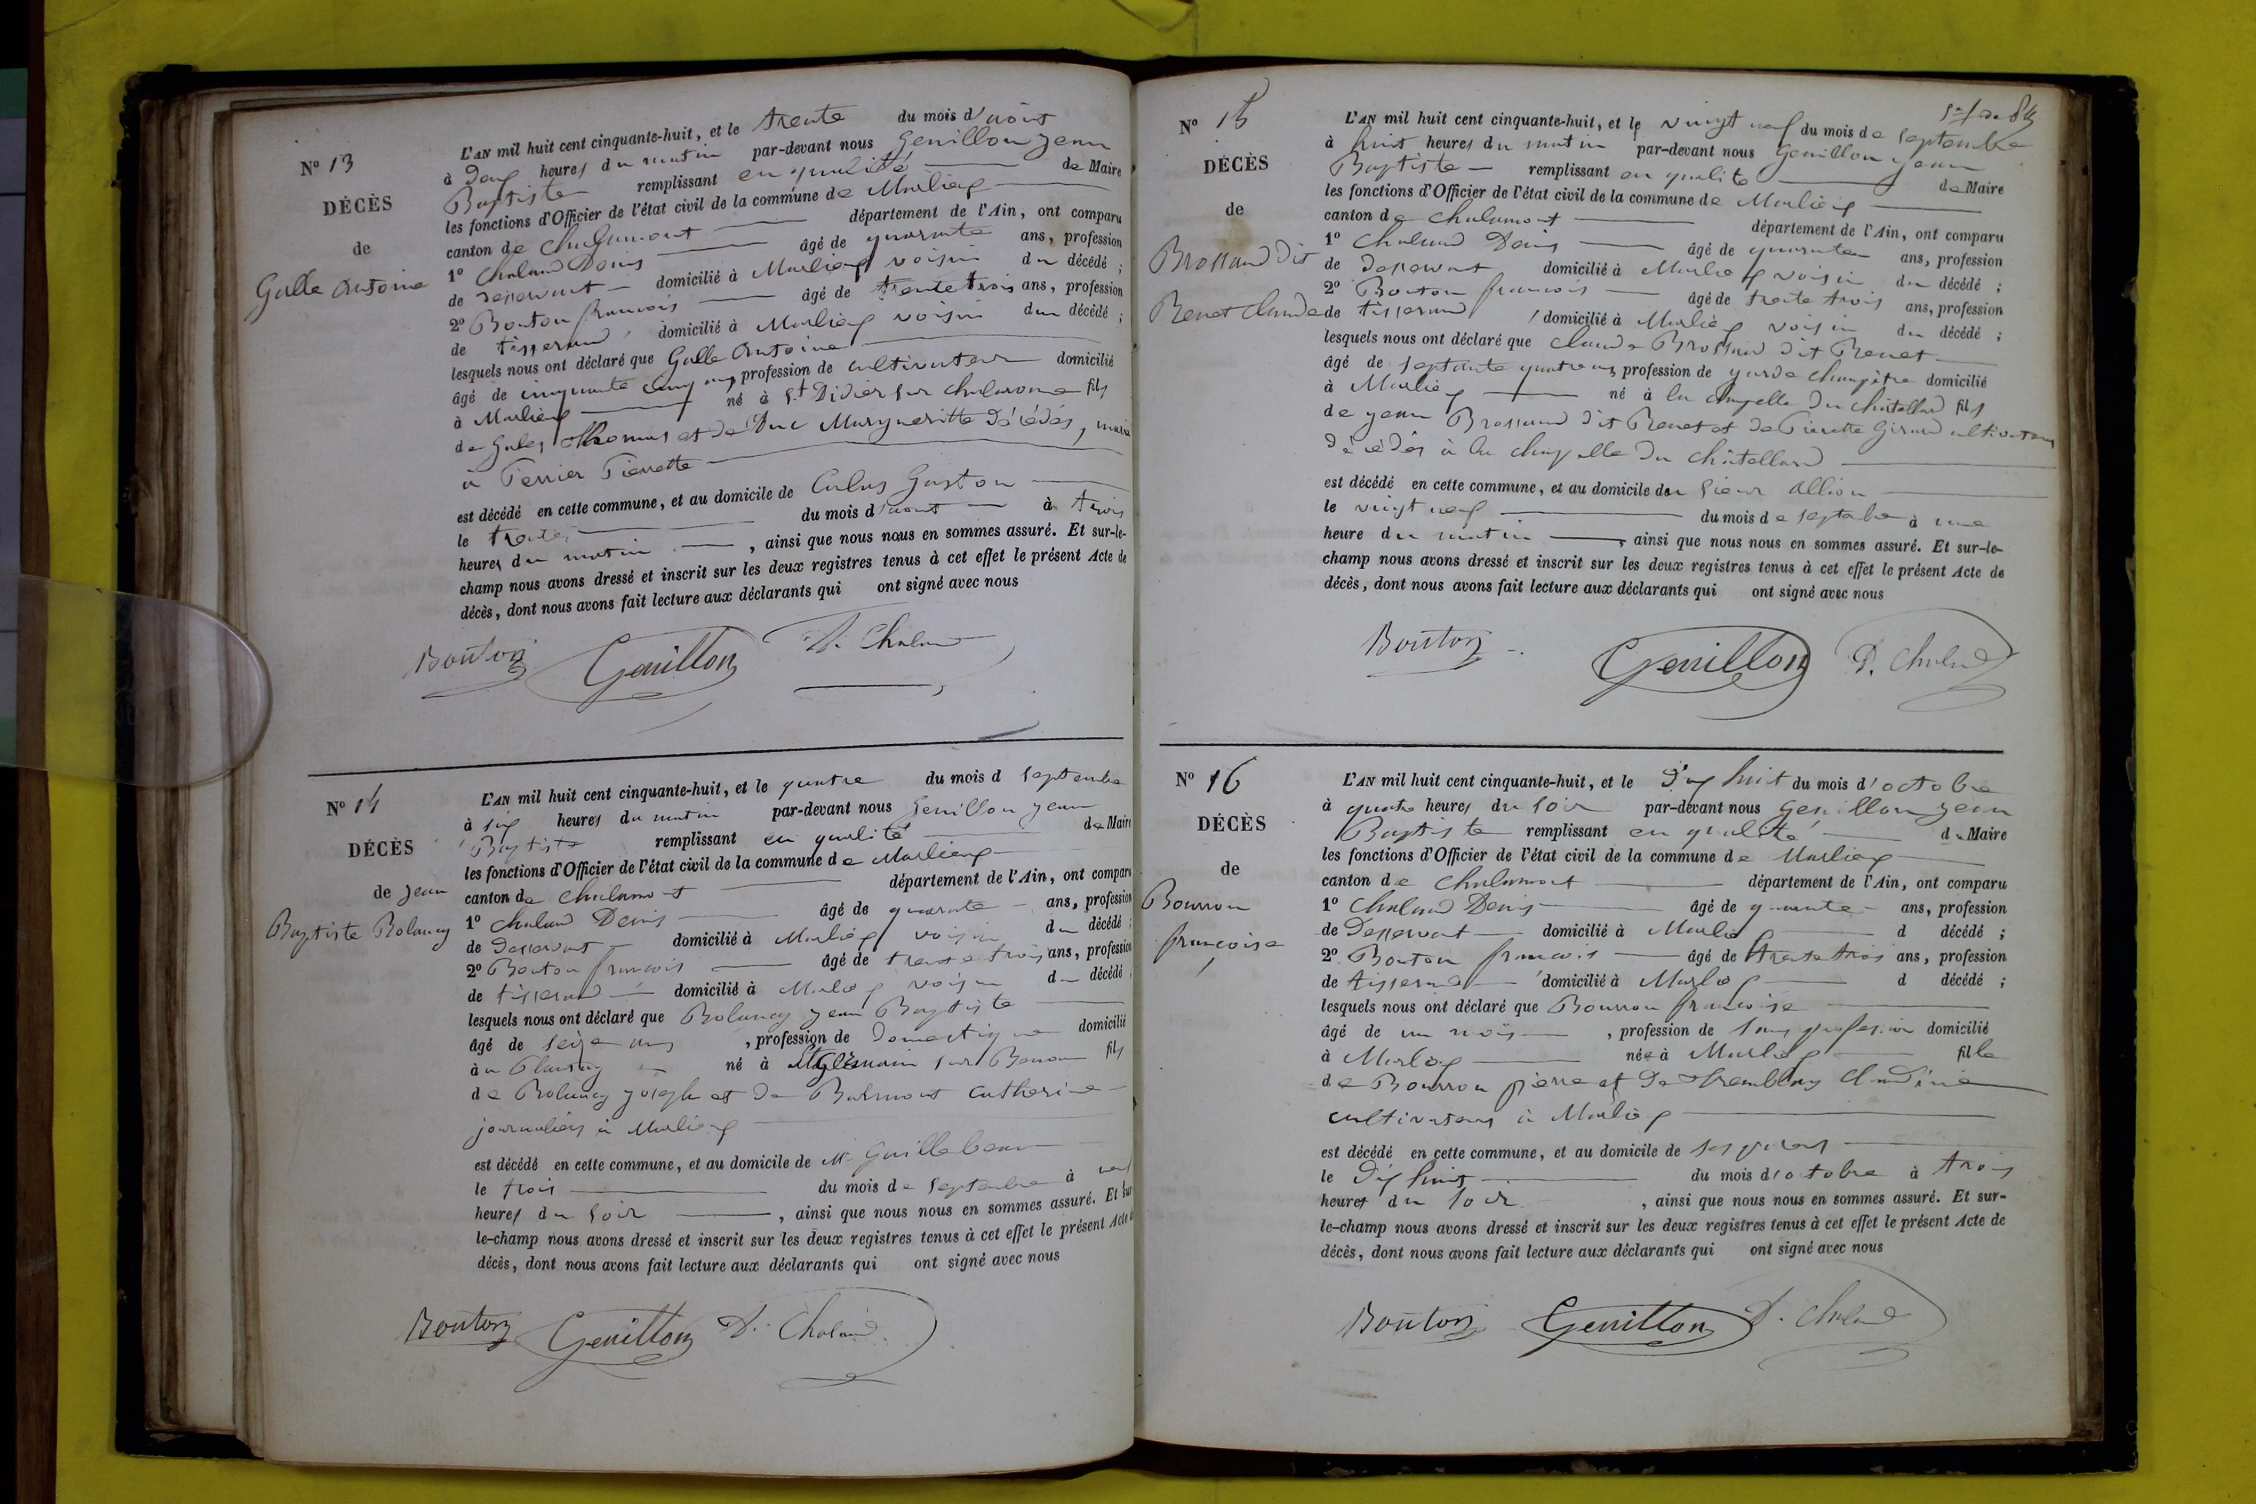 N° 13
DÉCÈS
de
Galle Antoine
L'AN mil huit cent cinquante-huit, et le trente du mois d'août
à deux heures du matin par-devant nous Genillon Jean
Baptiste remplissant en qualité de Maire
les fonctions d'Officier de l'état civil de la commune de Marlieux
canton de Chalamont département de l'Ain, ont comparu
1° Chaland Denis âgé de quarante ans, profession
de desservant domicilié à Marlieux voisin du décédé ;
2° Bouton françois âgé de trente trois ans, profession
de tisserand domicilié à Marlieux voisin du décédé ;
lesquels nous ont déclaré que Galle Antoine
âgé de cinquante cinq ans, profession de cultivateur domicilié
à Marlieux né à St Didier sur Chalaronne fils
de Galle Thomas et de Duc Margueritte décédés, marié
à Perrier Pierrette
est décédé en cette commune, et au domicile de Calas Gaston
le trente du mois d'août à trois
heures du matin, ainsi que nous nous en sommes assuré. Et sur-le-
champ nous avons dressé et inscrit sur les deux registres tenus à cet effet le présent Acte de
décès, dont nous avons fait lecture aux déclarants qui ont signé avec nous
Bouton Genillon D. Chaland
N° 14
DÉCÈS
de Jean
Baptiste Bolancy
L'AN mil huit cent cinquante-huit, et le quatre du mois d septembre
à six heures du matin par-devant nous Genillon Jean
Baptiste remplissant en qualité de Maire
les fonctions d'Officier de l'état civil de la commune de Marlieux
canton de Chalamont département de l'Ain, ont comparu
1° Chaland Denis âgé de quarante ans, profession
de desservant domicilié à Marlieux voisin du décédé ;
2° Bouton françois âgé de trente trois ans, profession
de tisserand domicilié à Marlieux voisin du décédé
lesquels nous ont déclaré que Bolancy Jean Baptiste
âgé de seize ans, profession de domestique domicilié
au né à St Germain sur Renon fils
de Bolancy Joseph et de Catherine
journaliers à Marlieux
est décédé en cette commune, et au domicile de Mr Guillebeau
le trois du mois de septembre à neuf
heures du soir, ainsi que nous nous en sommes assuré. Et sur
le-champ nous avons dressé et inscrit sur les deux registres tenus à cet effet le présent Acte
décès, dont nous avons fait lecture aux déclarants qui ont signé avec nous
Bouton Genillon D. Chaland
N° 15
DÉCÈS
de
Brossaud dit
Renet Claude
L'AN mil huit cent cinquante-huit, et le vingt neuf du mois de septembre
à huit heures du matin par-devant nous Genillon Jean
Baptiste remplissant en qualité de Maire
les fonctions d'Officier de l'état civil de la commune de Marlieux
canton de Chalamont département de l'Ain, ont comparu
1° Chaland Denis âgé de quarante ans, profession
de desservant domicilié à Marlieux voisin du décédé ;
2° Bouton françois âgé de trente trois ans, profession
de tisserand domicilié à Marlieux voisin du décédé ;
lesquels nous ont déclaré que Claude Brossaud dit Renet
âgé de septante quatre ans, profession de garde champêtre domicilié
à Marlieux né à la chapelle du châtellard fils
de Jean Brossaud dit Renet et de Pierrette Giraud cultivateurs
décédés à la chapelle du châtellard
est décédé en cette commune, et au domicile du sieur Allion
le vingt neuf du mois de septembre à une
heure du matin, ainsi que nous nous en sommes assuré. Et sur-le-
champ nous avons dressé et inscrit sur les deux registres tenus à cet effet le présent Acte de
décès, dont nous avons fait lecture aux déclarants qui ont signé avec nous
Bouton Genillon D. Chaland
N° 16
DÉCÈS
de
Bourron
françoise
L'AN mil huit cent cinquante-huit, et le dix huit du mois d'octobre
à quatre heures du soir par-devant nous Genillon Jean
Baptiste remplissant en qualité de Maire
les fonctions d'Officier de l'état civil de la commune de Marlieux
canton de Chalamont département de l'Ain, ont comparu
1° Chaland Denis âgé de quarante ans, profession
de desservant domicilié à Marlieux d décédé ;
2° Bouton françois âgé de trente trois ans, profession
de tisserand domicilié à Marlieux d décédé ;
lesquels nous ont déclaré que Bourron françoise
âgé de un mois, profession de sans profession domicilié
à Marlieux née à Marlieux fille
de Bourron pierre et de Tremblay Claudine
cultivateurs à Marlieux
est décédé en cette commune, et au domicile de ses pères
le dix huit du mois d'octobre à trois
heures du soir, ainsi que nous nous en sommes assuré. Et sur-
le-champ nous avons dressé et inscrit sur les deux registres tenus à cet effet le présent Acte de
décès, dont nous avons fait lecture aux déclarants qui ont signé avec nous
Bouton Genillon D. Chaland